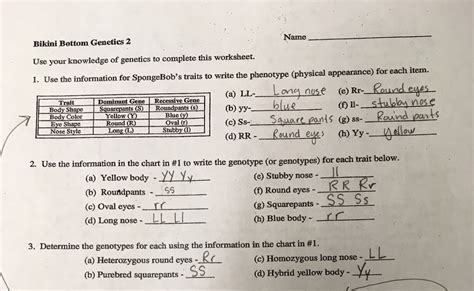 Bikini Bottom Genetics 2
Name
Use your knowledge of genetics to complete this worksheet.
1. Use the information for SpongeBob's traits to write the phenotype (physical appearance) for each item.
Trait Dominant Gene Recessive Gene
Body Shape Squarepants (S) Roundpants (s)
Body Color Yellow (Y) Blue (y)
Eye Shape Round (R) Oval (r)
Nose Style Long (L) Stubby (l)
(a) LL- Long nose (e) Rr- Round eyes
(b) yy- blue (f) ll- stubby nose
(c) Ss- Square pants (g) ss- Round pants
(d) RR - Round eyes (h) Yy - Yellow
2. Use the information in the chart in #1 to write the genotype (or genotypes) for each trait below.
(a) Yellow body - YY Yy (e) Stubby nose - ll
(b) Roundpants - ss (f) Round eyes - RR Rr
(c) Oval eyes - rr (g) Squarepants - SS Ss
(d) Long nose - LL Ll (h) Blue body - rr
3. Determine the genotypes for each using the information in the chart in #1.
(a) Heterozygous round eyes - Rr (c) Homozygous long nose - LL
(b) Purebred squarepants - SS (d) Hybrid yellow body - Yy